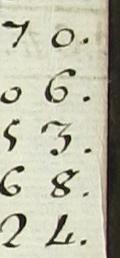 7 0.
0 6.
5 3.
6 8.
2 4.